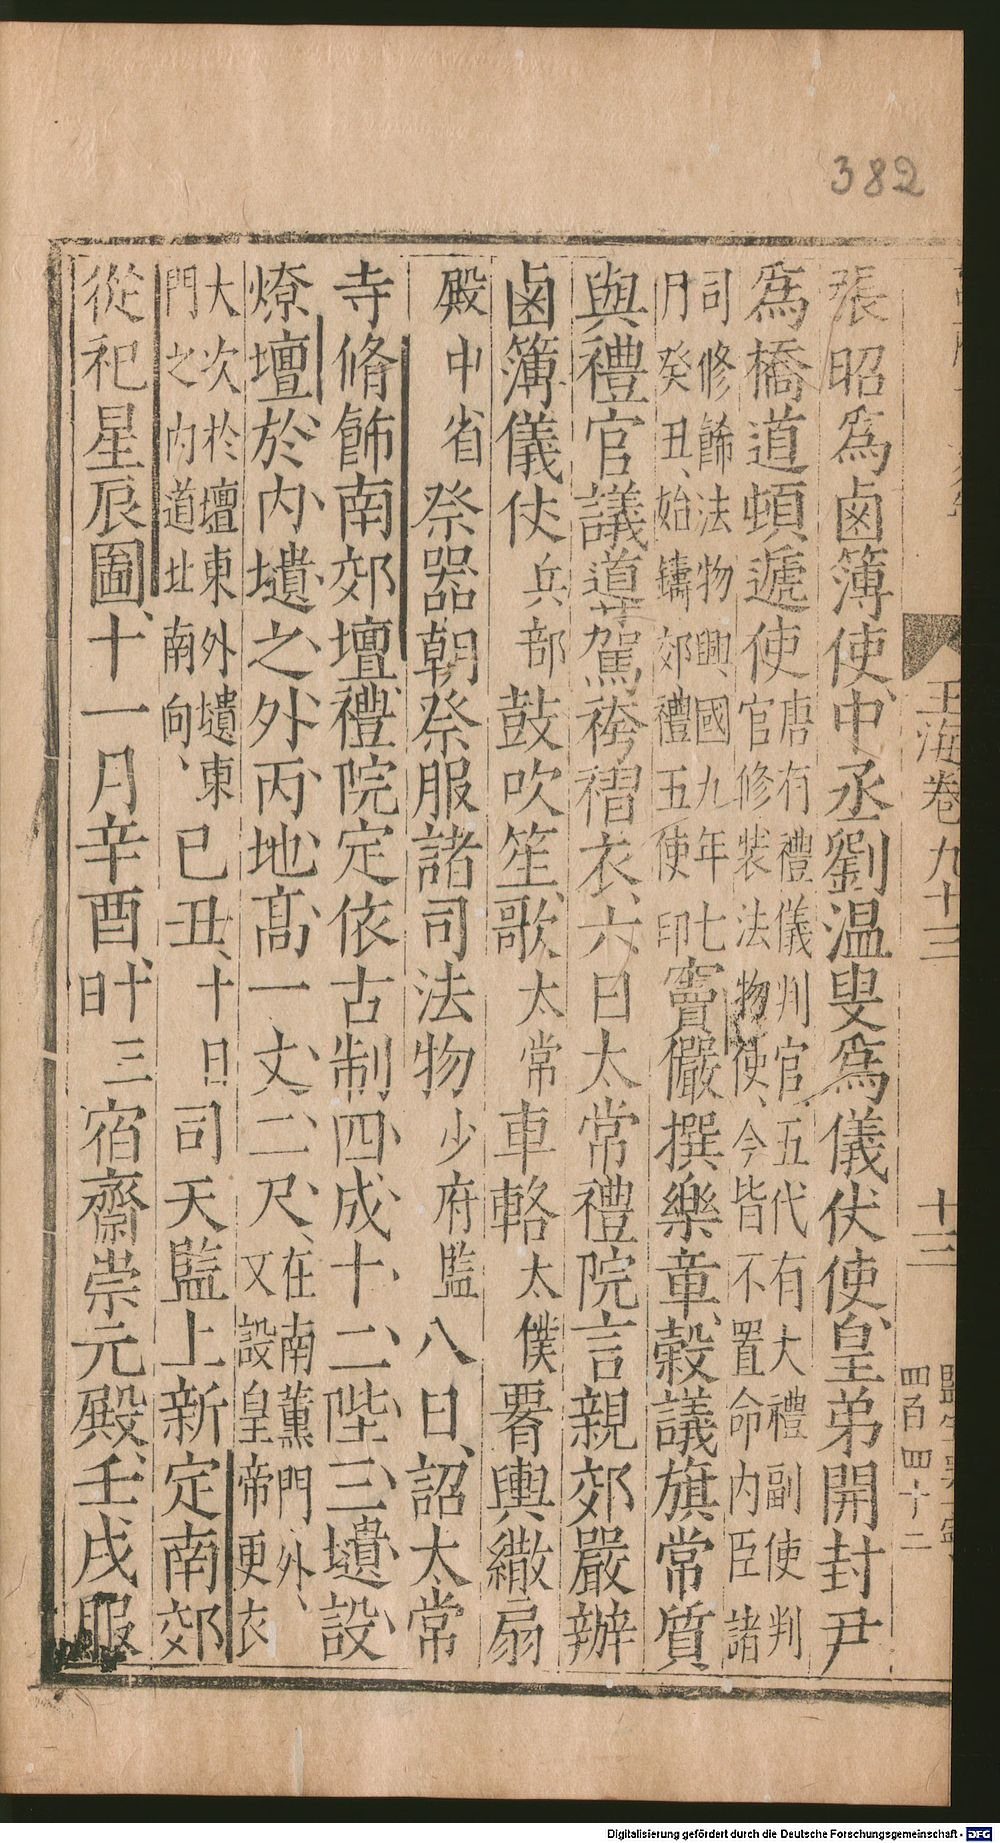 382
玉海卷九十三
十三
四百四十二
張昭爲鹵簿使、中丞劉温叟爲儀仗使、皇弟開封尹
爲橋道頓遞使唐有禮儀判官、五代有大禮副使判官修裝法物使、今皆不置命内臣諸
司修飾法物興國九年七月癸丑、始鑄郊禮五使印竇儼撰樂章、穀議旗常質
與禮官議導駕袴褶衣、六日太常禮院言親郊嚴辦
鹵簿儀仗兵部鼓吹笙歌、太常車輅太僕傘輿繖扇
殿中省祭器朝祭服諸司法物少府監八日、詔太常
寺脩飾南郊壇、禮院定依古制四成、十二陛、三壝、設
燎壇、於内壝之外、丙地、高一丈、二尺、在南薰門外、又設皇帝更衣
大次於壇東外壝東門之内道北南向、已丑、十日司天監上新定南郊
從祀星辰圖、十一月辛酉、十三日宿齋崇元殿、壬戌服
Digitalisierung gefördert durch die Deutsche Forschungsgemeinschaft - DFG